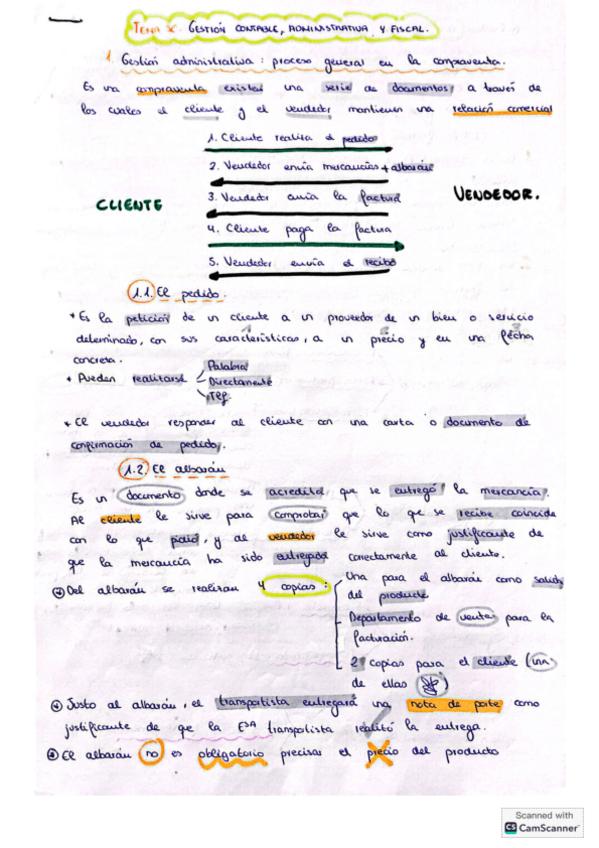 TEMA X. GESTIÓN CONTABLE, ADMINISTRATIVA Y FISCAL.
1. Gestión administrativa: proceso general en la compraventa.
En una compraventa existen una serie de documentos, a través de
los cuales el cliente y el vendedor mantienen una relación comercial
1. Cliente realiza el pedido
2. Vendedor envía mercancías + albarán
CLIENTE
3. Vendedor envía la factura
VENDEDOR.
4. Cliente paga la factura
5. Vendedor envía el recibo
1.1. El pedido.
* Es la petición de un cliente a un proveedor de un bien o servicio
determinado, con sus características, a un precio y en una fecha
concreta.
* Pueden realizarse
Palabra
Directamente
Telf
* El vendedor responder al cliente con una carta o documento de
confirmación de pedido.
1.2. El albarán
Es un documento donde se acredita que se entregó la mercancía.
Al cliente le sirve para comprobar que lo que se recibe coincide
con lo que pidió, y al vendedor le sirve como justificante de
que la mercancía ha sido entregada correctamente al cliente.
Del albarán se realizan 4 copias:
Una para el albarán como salida
del producto
Departamento de ventas para la
facturación.
2 copias para el cliente (una
de ellas
Justo al albarán, el transportista entregará una nota de porte como
justificante de que la Esa transportista realizó la entrega.
El albarán no es obligatorio precisar el precio del producto
Scanned with
CS CamScanner